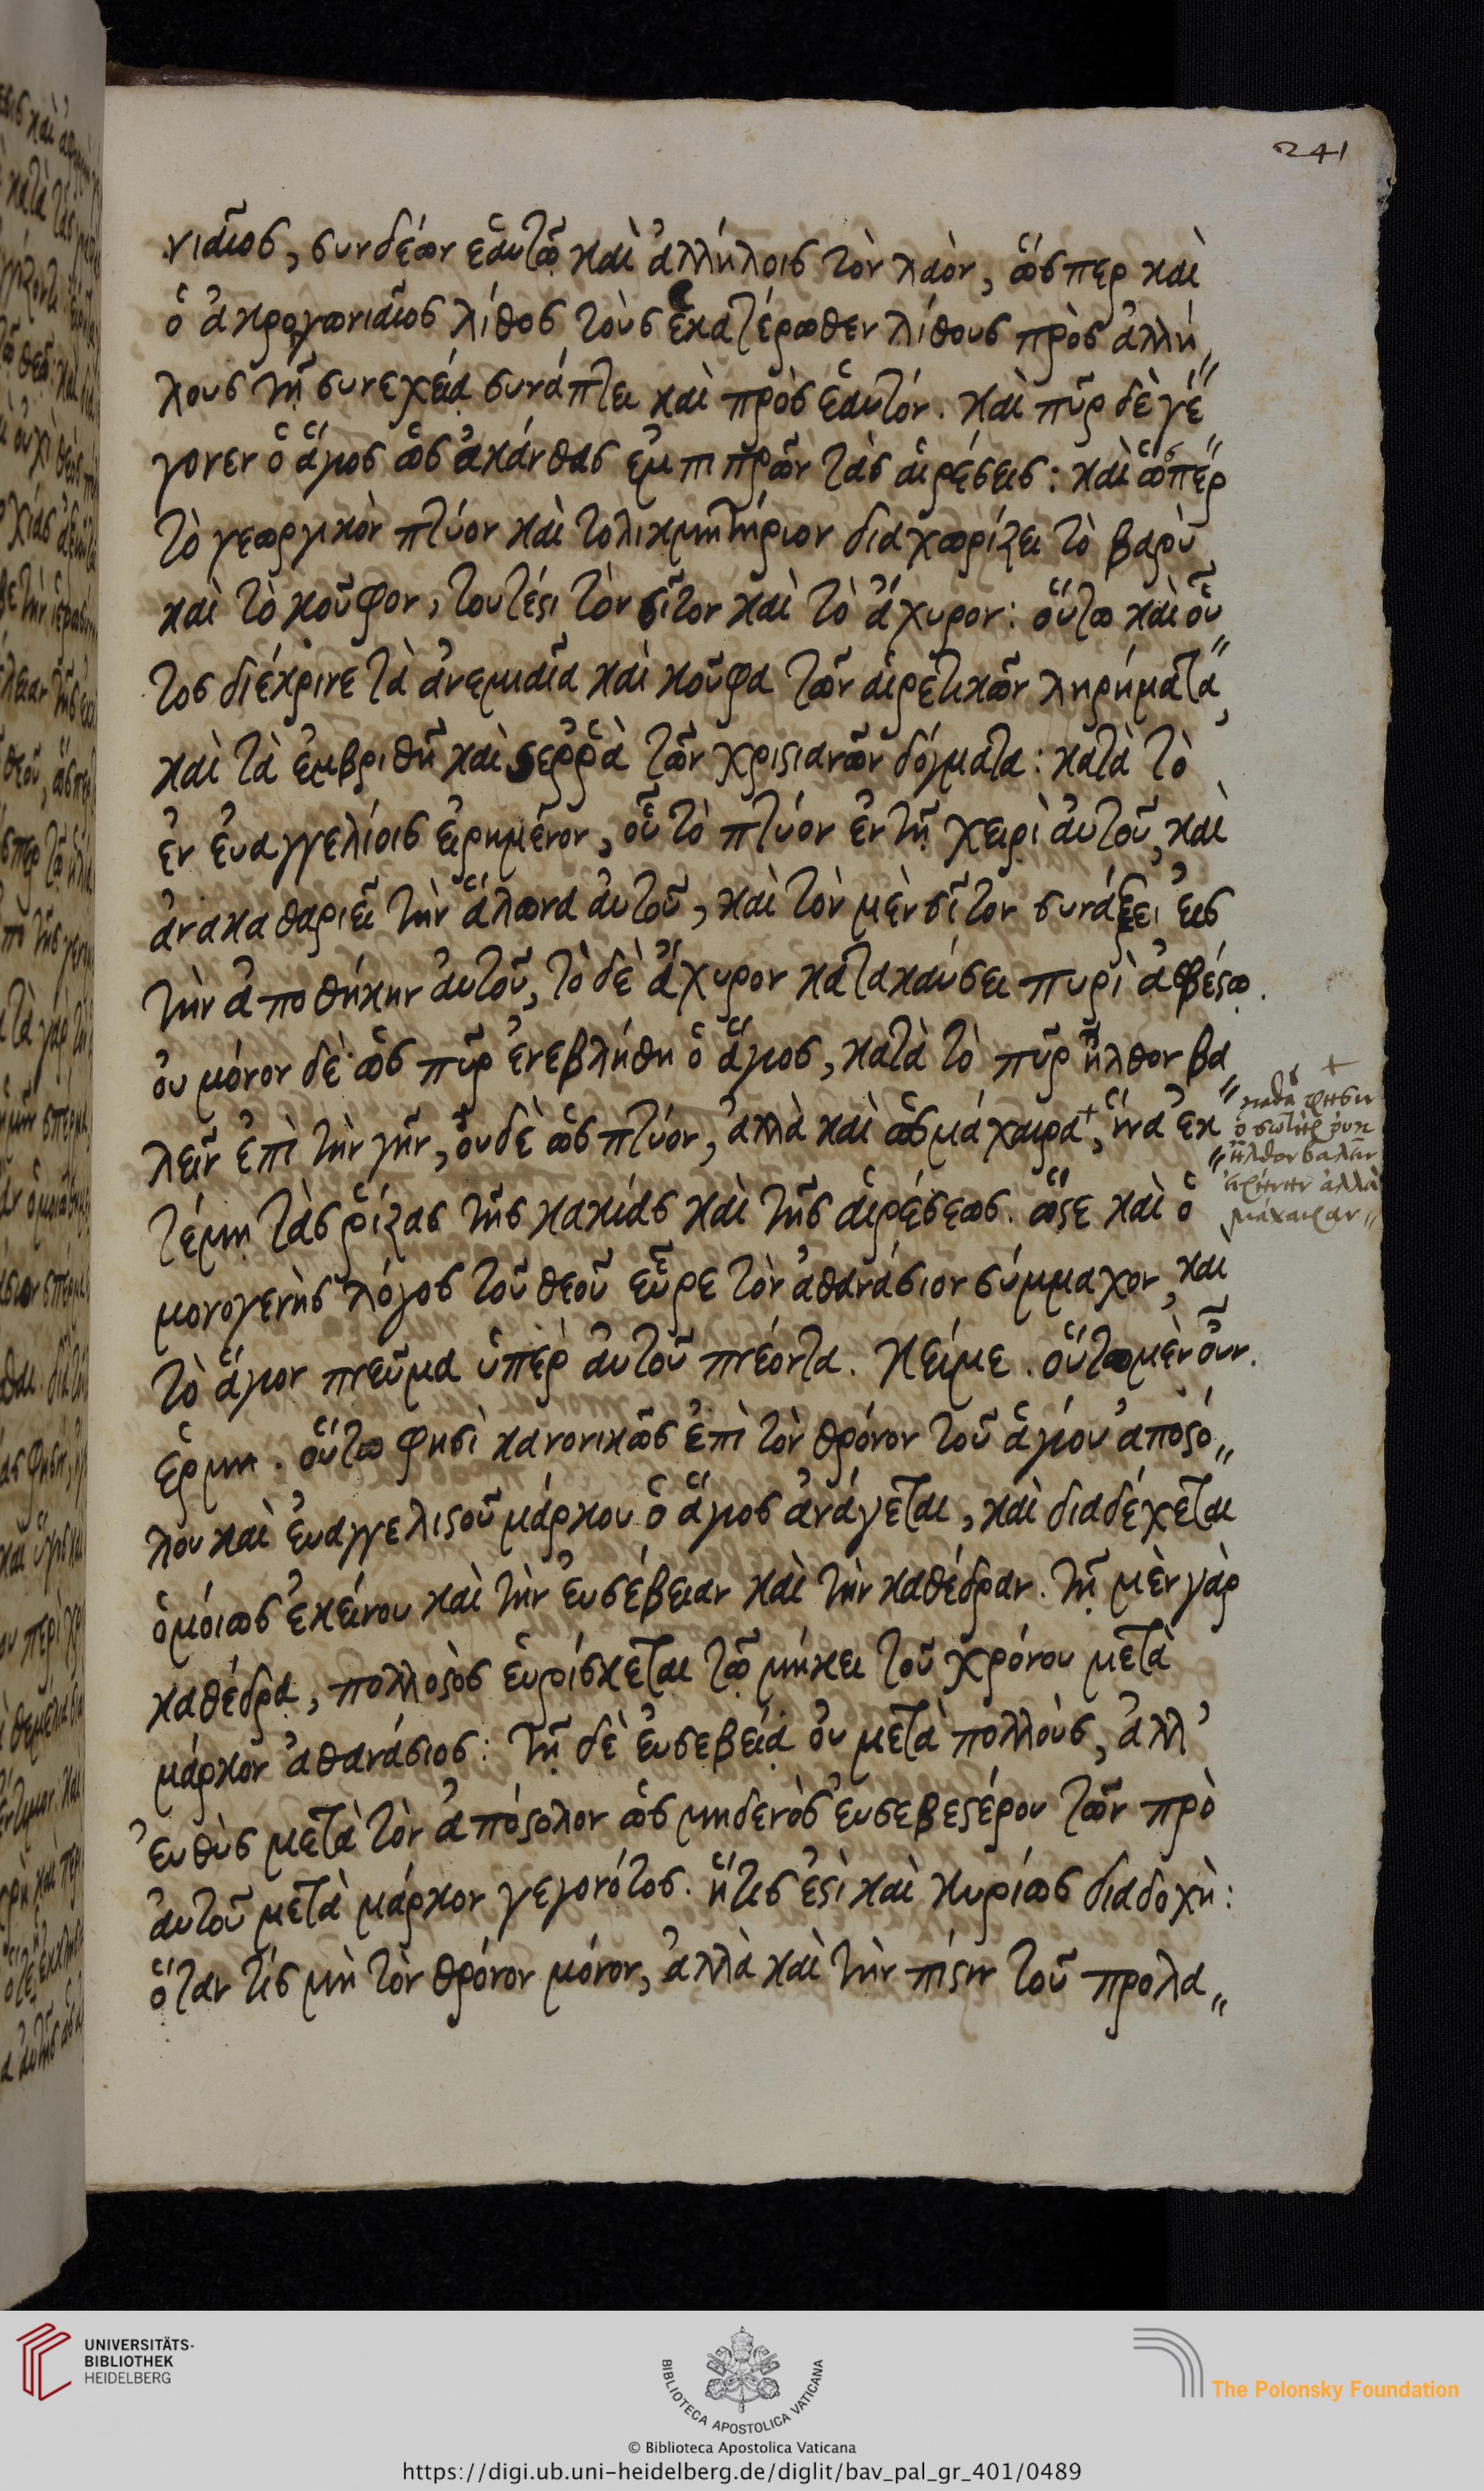 241
νιαῖος, συνδέων ἑαυτῷ καὶ ἀλλήλοις τὸν λαὸν, ὥσπερ καὶ
ὁ ἀκρογωνιαῖος λίθος τοὺς ἑκατέρωθεν λίθους πρὸς ἀλλή„
λους τῇ συνεχείᾳ συνάπτει καὶ πρὸς ἑαυτόν. καὶ πῦρ δὲ γέ„
γονεν ὁ ἅγιος ὡς ἀκάνθας ἐμπιπρῶν τὰς αἱρέσεις: καὶ ὥσπερ
τὸ γεωργικὸν πτύον καὶ τολικμητήριον διαχωρίζει τὸ βαρὺ
καὶ τὸ κοῦφον, τουτέστι τὸν σῖτον καὶ τὸ ἄχυρον: οὕτω καὶ οὗ„
τος διέκρινε τὰ ἀνεμιαῖα καὶ κοῦφα τῶν αἱρετικῶν ληρήματα,
καὶ τὰ ἐμβριθῆ καὶ στερρὰ τῶν χριστιανῶν δόγματα: κατὰ τὸ
ἐν εὐαγγελίοις εἰρημένον, οὗ τὸ πτύον ἐν τῇ χειρὶ αὐτοῦ, καὶ
ἀνακαθαριεῖ τὴν ἅλωνα αὐτοῦ, καὶ τὸν μὲν σῖτον συνάξει εἰς
τὴν ἀποθήκην αὐτοῦ, τὸ δὲ ἄχυρον κατακαύσει πυρὶ ἀσβέστῳ.
οὐ μόνον δὲ ὡς πῦρ ἐνεβλήθη ὁ ἅγιος, κατὰ τὸ πῦρ ἦλθον βα„
λεῖν ἐπὶ τὴν γῆν, οὐδὲ ὡς πτύον, ἀλλὰ καὶ ὡς μάχαιρα+, ἵνα ἐκ„
τέμῃ τὰς ῥίζας τῆς κακίας καὶ τῆς αἱρέσεως. ὥστε καὶ ὁ
μονογενὴς λόγος τοῦ θεοῦ εὗρε τὸν ἀθανάσιον σύμμαχον, καὶ
τὸ ἅγιον πνεῦμα ὑπὲρ αὐτοῦ πνέοντα. κείμε. οὕτω μὲν οὖν.
ἑρμη. οὕτω φησὶ κανονικῶς ἐπὶ τὸν θρόνον τοῦ ἁγίου ἀποστό„
λου καὶ εὐαγγελιστοῦ μάρκου ὁ ἅγιος ἀνάγεται, καὶ διαδέχεται
ὁμοίως ἐκείνου καὶ τὴν εὐσέβειαν καὶ τὴν καθέδραν. τῇ μὲν γὰρ
καθέδρᾳ, πολλοστὸς εὑρίσκεται τῷ μήκει τοῦ χρόνου μετὰ
μάρκον ἀθανάσιος: τῇ δὲ εὐσεβείᾳ οὐ μετὰ πολλοὺς, ἀλλ'
εὐθὺς μετὰ τὸν ἀπόστολον ὡς μηδενὸς εὐσεβεστέρου τῶν πρὸ
αὐτοῦ μετὰ μάρκον γεγονότος. ἥτις ἐστὶ καὶ κυρίως διαδοχὴ:
ὅταν τίς μὴ τὸν θρόνον μόνον, ἀλλὰ καὶ τὴν πίστιν τοῦ προλα„
+
καθὰ φησιν
ὁ σωτὴρ οὐκ
ἦλθον βαλεῖν
εἰρήνην ἀλλὰ
μάχαιραν„
UNIVERSITÄTS-
BIBLIOTHEK
HEIDELBERG
BIBLIOTECA APOSTOLICA VATICANA
The Polonsky Foundation
© Biblioteca Apostolica Vaticana
https://digi.ub.uni-heidelberg.de/diglit/bav_pal_gr_401/0489